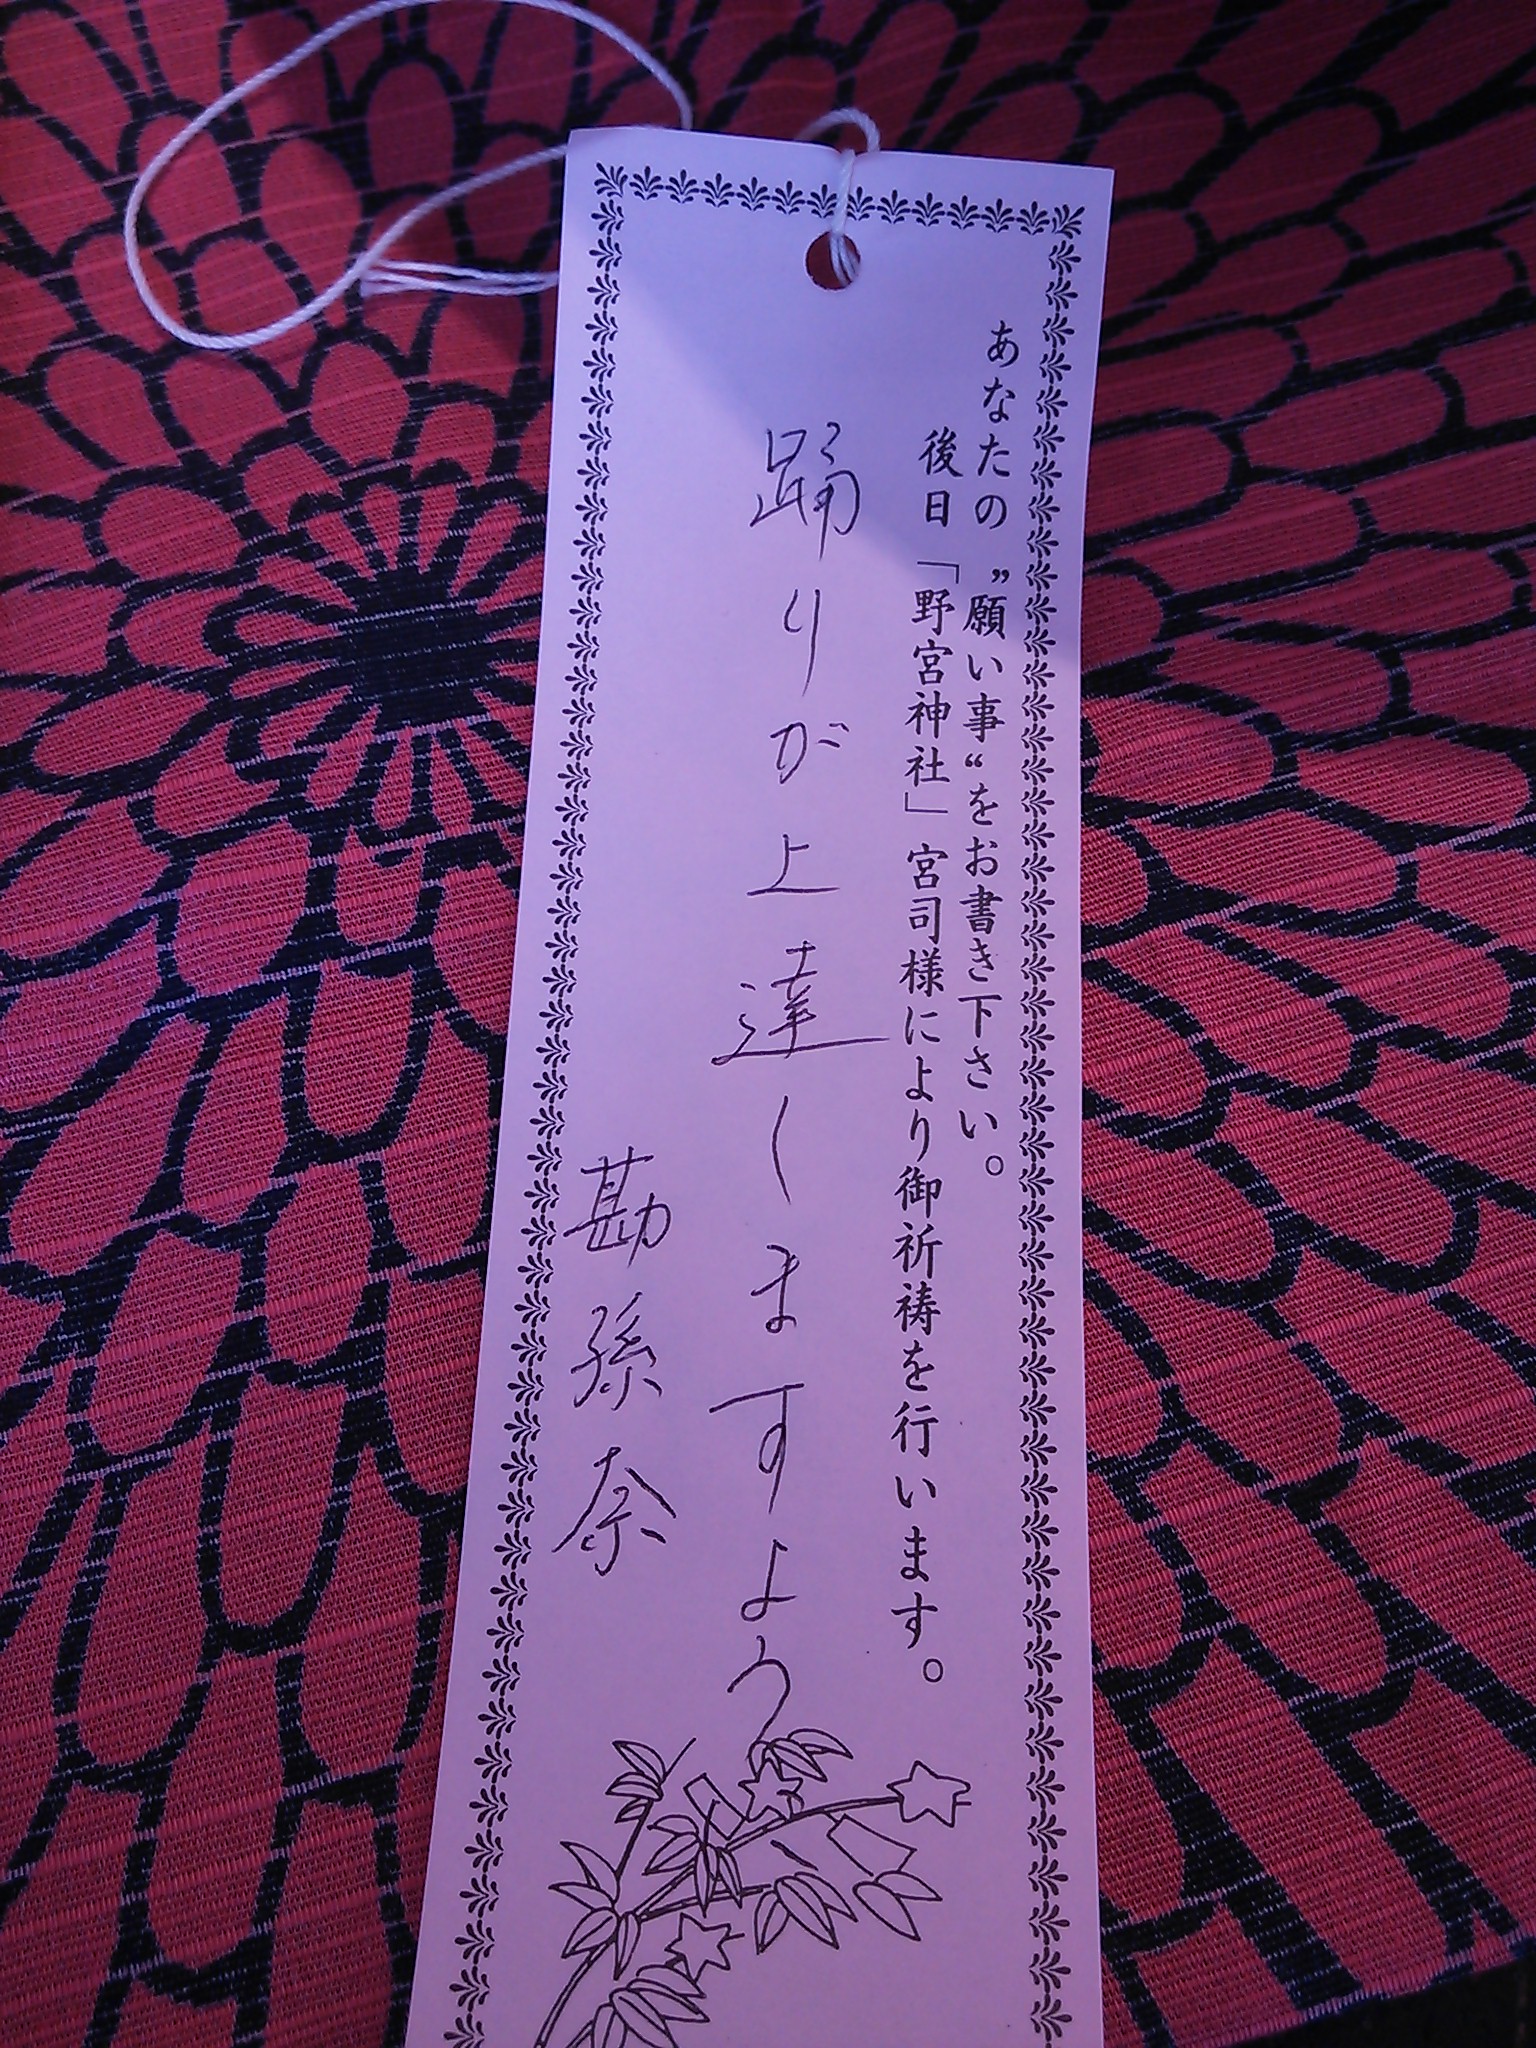 あなたの”願い事“をお書き下さい。
後日「野宮神社」宮司様により御祈祷を行います。
踊りが上達しますよう
勘孫奈